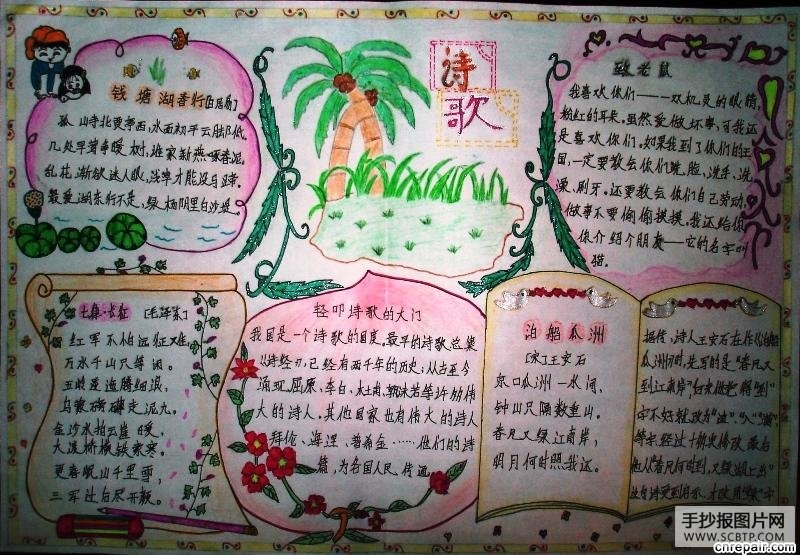 诗
歌
钱塘湖春行[白居易]
孤山寺北贾亭西,水面初平云脚低。
几处早莺争暖树,谁家新燕啄春泥。
乱花渐欲迷人眼,浅草才能没马蹄。
最爱湖东行不足,绿杨阴里白沙堤。
致老鼠
我喜欢你们——双机灵的眼睛,
粉红的耳朵。虽然爱做坏事,可我还
是喜欢你们。如果我到了你们的王
国,一定要教会你们洗脸、洗手、洗
澡、刷牙。还要教会你们自己劳动,
做事不要偷偷摸摸。我还给你
你介绍个朋友——它的名字叫
猫。
七律·长征 [毛泽东]
红军不怕远征难,
万水千山只等闲。
五岭逶迤腾细浪,
乌蒙磅礴走泥丸。
金沙水拍云崖暖,
大渡桥横铁索寒。
更喜岷山千里雪,
三军过后尽开颜。
轻叩诗歌的大门
我国是一个诗歌的国度,最早的诗歌总集
《诗经》,已经有两千年的历史;从古至今
涌现屈原、李白、杜甫、郭沫若等许多伟
大的诗人。其他国家也有伟大的诗人
拜伦、海涅、普希金……他们的诗
篇,为各国人民传诵。
泊船瓜洲
[宋]王安石
京口瓜洲一水间,
钟山只隔数重山。
春风又绿江南岸,
明月何时照我还。
据传,诗人王安石在作《泊船
瓜洲》时,先写的是"春风又
到江南岸"
手抄报图片网
WWW.SCBTP.COM
cnrepair.com